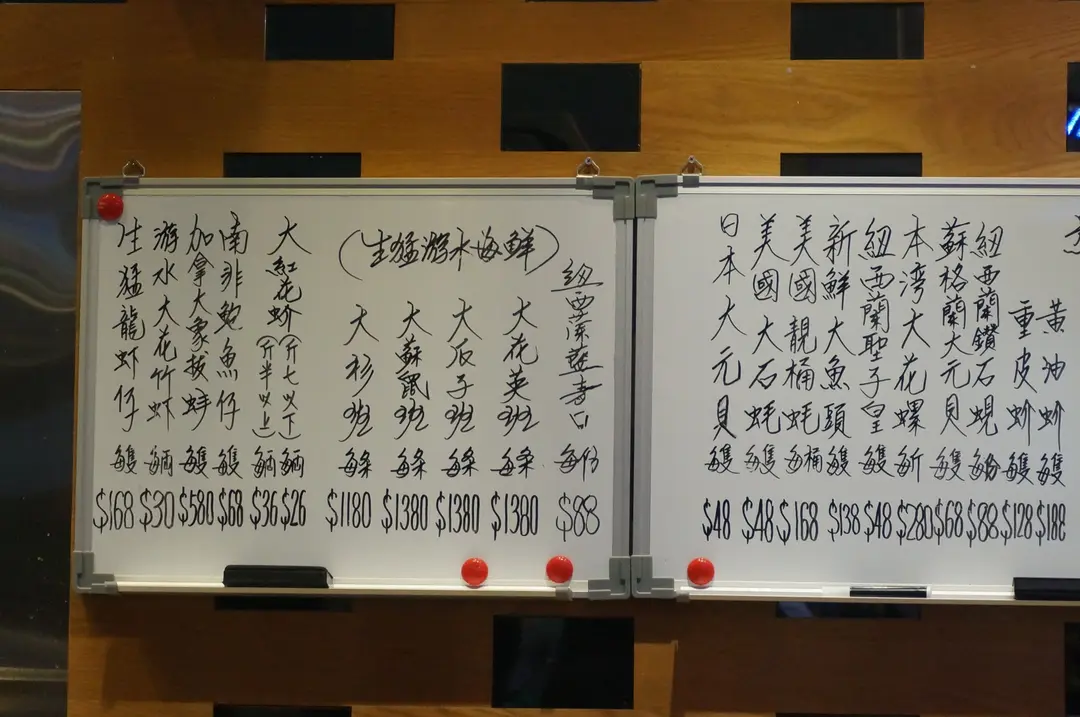 (生猛游水海鮮)
紐西蘭青口每份$88
大花英班每条$1380
大瓜子班每条$1380
大蘇鼠班每条$1380
大杉班每条$1180
大紅花蚧
(斤七以下)每兩$26
(斤半以上)每兩$36
南非鲍魚仔每隻$68
加拿大象拔蚌每隻$580
游水大花竹虾每兩$30
生猛龍虾仔每隻$168
黃油蚧每隻$188
重皮蚧每隻$128
紐西蘭鑽石蜆每份$88
蘇格蘭大元貝每隻$68
本湾大花螺每斤$280
紐西蘭聖子皇每隻$48
新鮮大魚頭每隻$138
美國靚桶蚝每桶$168
美國大石蚝每隻$48
日本大元貝每隻$48